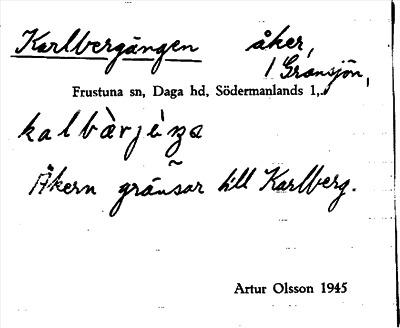 Karlbergängen åker,
/ Gränsjön,
Frustuna sn, Daga hd, Södermanlands l.,
Åkern gränsar till Karlberg.
Artur Olsson 1945